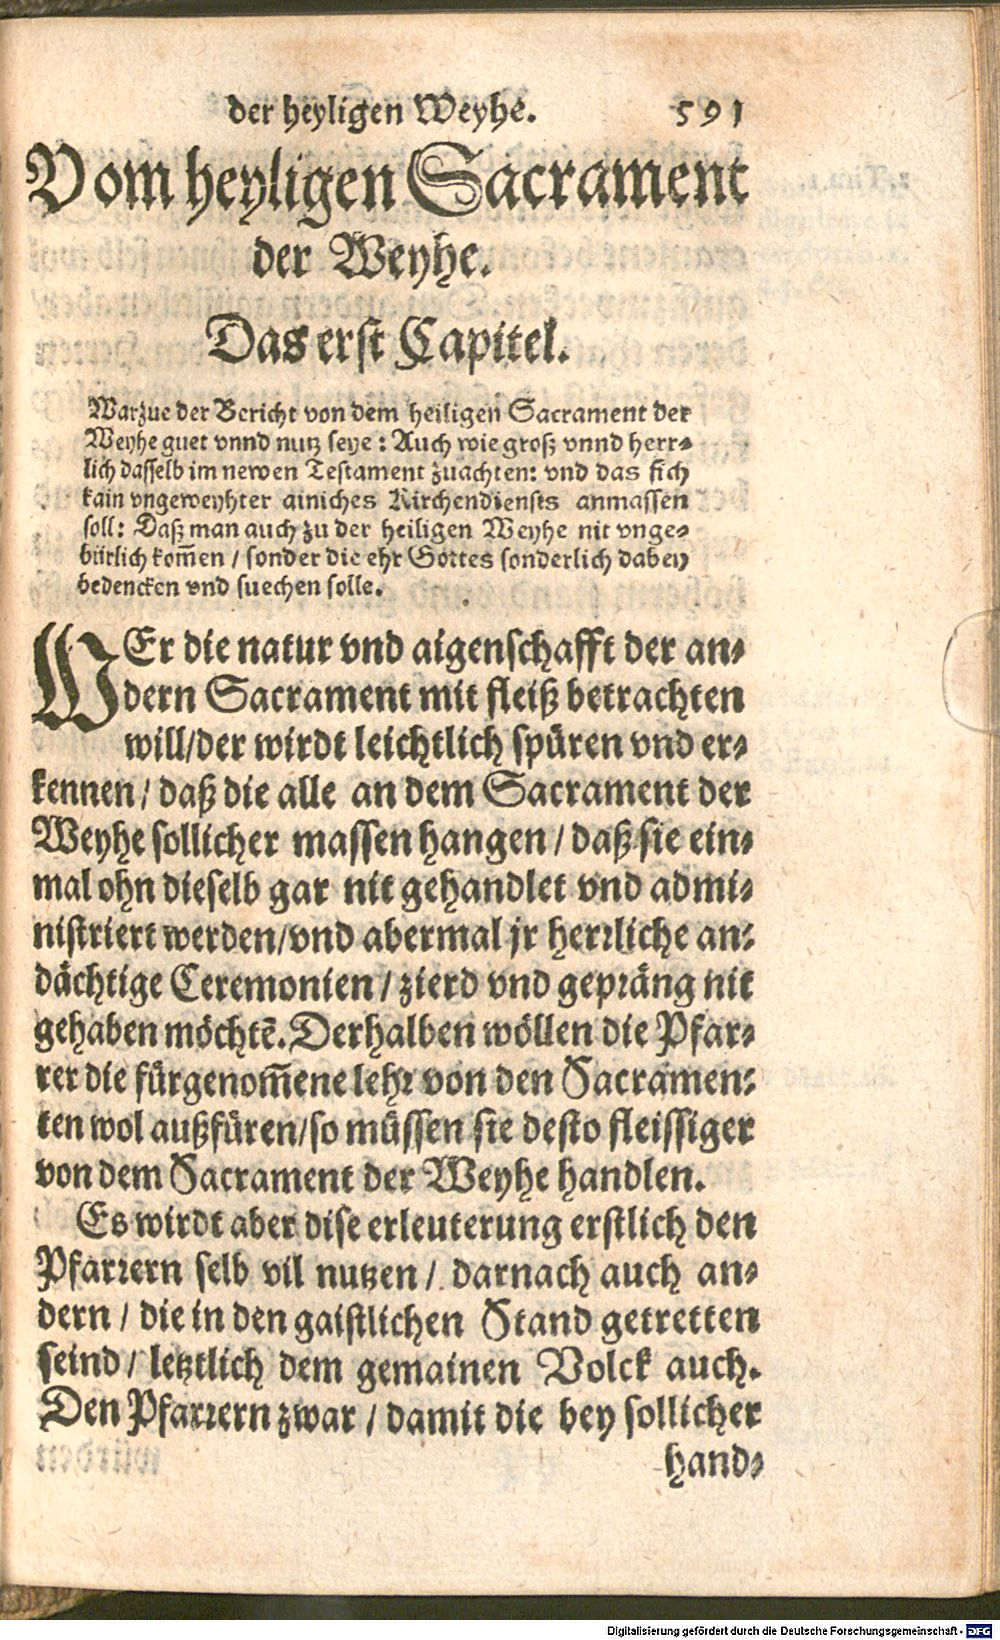 der heyligen Weyhe. 591
Vom heyligen Sacrament
der Weyhe.
Das erst Capitel.
Warzue der Bericht von dem heiligen Sacrament der
Weyhe guet vnnd nutz seye: Auch wie groß vnnd herr-
lich dasselb im newen Testament zuachten: vnd das sich
kain vngeweyhter ainiches Kirchendiensts anmassen
soll: Daß man auch zu der heiligen Weyhe nit vnge-
bürlich kom̃en / sonder die ehr Gottes sonderlich dabey
bedencken vnd suechen solle.
WEr die natur vnd aigenschafft der an-
dern Sacrament mit fleiß betrachten
will/der wirdt leichtlich spüren vnd er-
kennen / daß die alle an dem Sacrament der
Weyhe sollicher massen hangen / daß sie ein-
mal ohn dieselb gar nit gehandlet vnd admi-
nistriert werden/vnd abermal jr herrliche an-
dächtige Ceremonien / zierd vnd gepräng nit
gehaben möchtẽ. Derhalben wöllen die Pfar-
rer die fürgenom̃ene lehr von den Sacramen-
ten wol außfüren/so müssen sie desto fleissiger
von dem Sacrament der Weyhe handlen.
Es wirdt aber dise erleuterung erstlich den
Pfarrern selb vil nutzen / darnach auch an-
dern / die in den gaistlichen Stand getretten
seind / letztlich dem gemainen Volck auch.
Den Pfarrern zwar / damit die bey sollicher
hand-
Digitalisierung gefördert durch die Deutsche Forschungsgemeinschaft - DFG